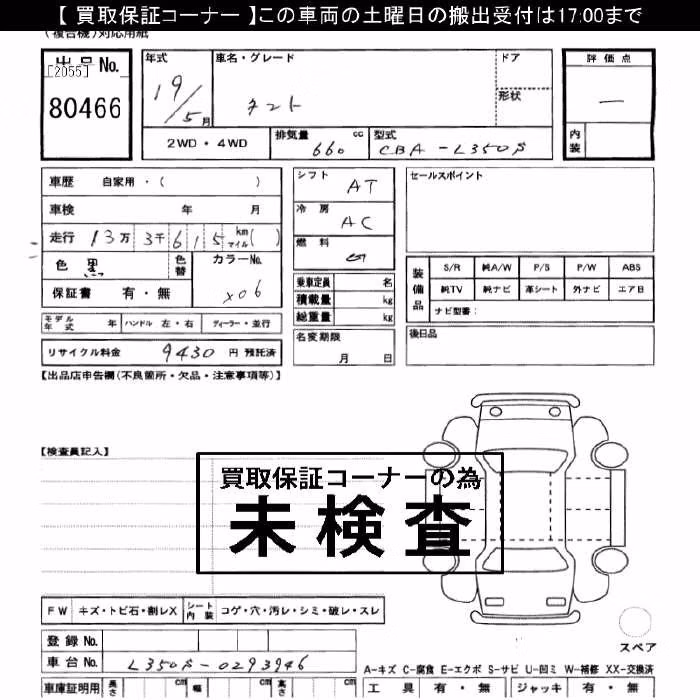 【 買取保証コーナー 】この車両の土曜日の搬出受付は17:00まで
(複合機)対応用紙
出品No.
[2055]
80466
年式
19/5月
車名・グレード
タント
ドア
形状
評価点
—
内装
2WD・4WD
排気量 660 cc
型式 CBA-L350S
車歴 自家用・( )
車検 年 月
走行 13万 3千 6 1 5 km マイル ( )
色 黒
色替
カラーNo.
X06
保証書 有・無
シフト AT
冷房 AC
燃料
乗車定員 名
積載量 kg
総重量 kg
セールスポイント
装備品
S/R 純A/W P/S P/W ABS
純TV 純ナビ 革シート 外ナビ エア日
ナビ型番:
モデル年式 年 ハンドル 左・右 ディーラー・並行
リサイクル料金 9430 円 預託済
名変期限
月 日
後日品
【出品店申告欄(不良箇所・欠品・注意事項等)】
【検査員記入】
買取保証コーナーの為
未検査
FW キズ・トビ石・割レX シート内装 コゲ・穴・汚レ・シミ・破レ・スレ
スペア
登録No.
車台No. L350S-0293946
A-キズ C-腐食 E-エクボ S-サビ U-凹ミ W-補修 XX-交換済
車庫証明用 長さ cm 幅 cm 高さ cm
工具 有・無 ジャッキ 有・無